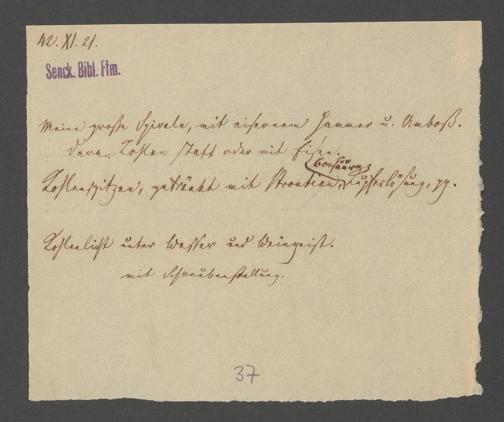 42. XI. 21.
Senck. Bibl. Ffm.
Meine große Spirale, mit eisernem Hammer u. Amboß.
Daran Kohlen statt oder mit Eisen.
Borsäure
Kohlenspitzen, getränkt mit Strontian, Kupferlösung, pp.
Kohlenlicht unter Wasser und Weingeist.
mit Schraubenstellung.
37